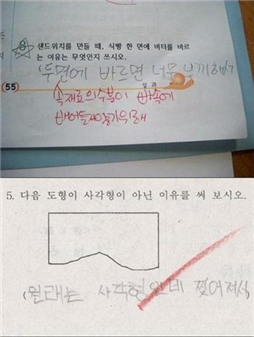 샌드위치를 만들 때, 식빵 한 면에 버터를 바르
는 이유는 무엇인지 쓰시오.
(두면에 바르면 너무 부끼하니까
55
속재료의 수분이 빵속에
배어들지 않기 위해
5. 다음 도형이 사각형이 아닌 이유를 써 보시오.
(원래는 사각형인데 찢어져서